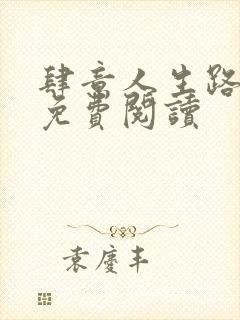 肆意人生路
免費閱讀
袁慶丰